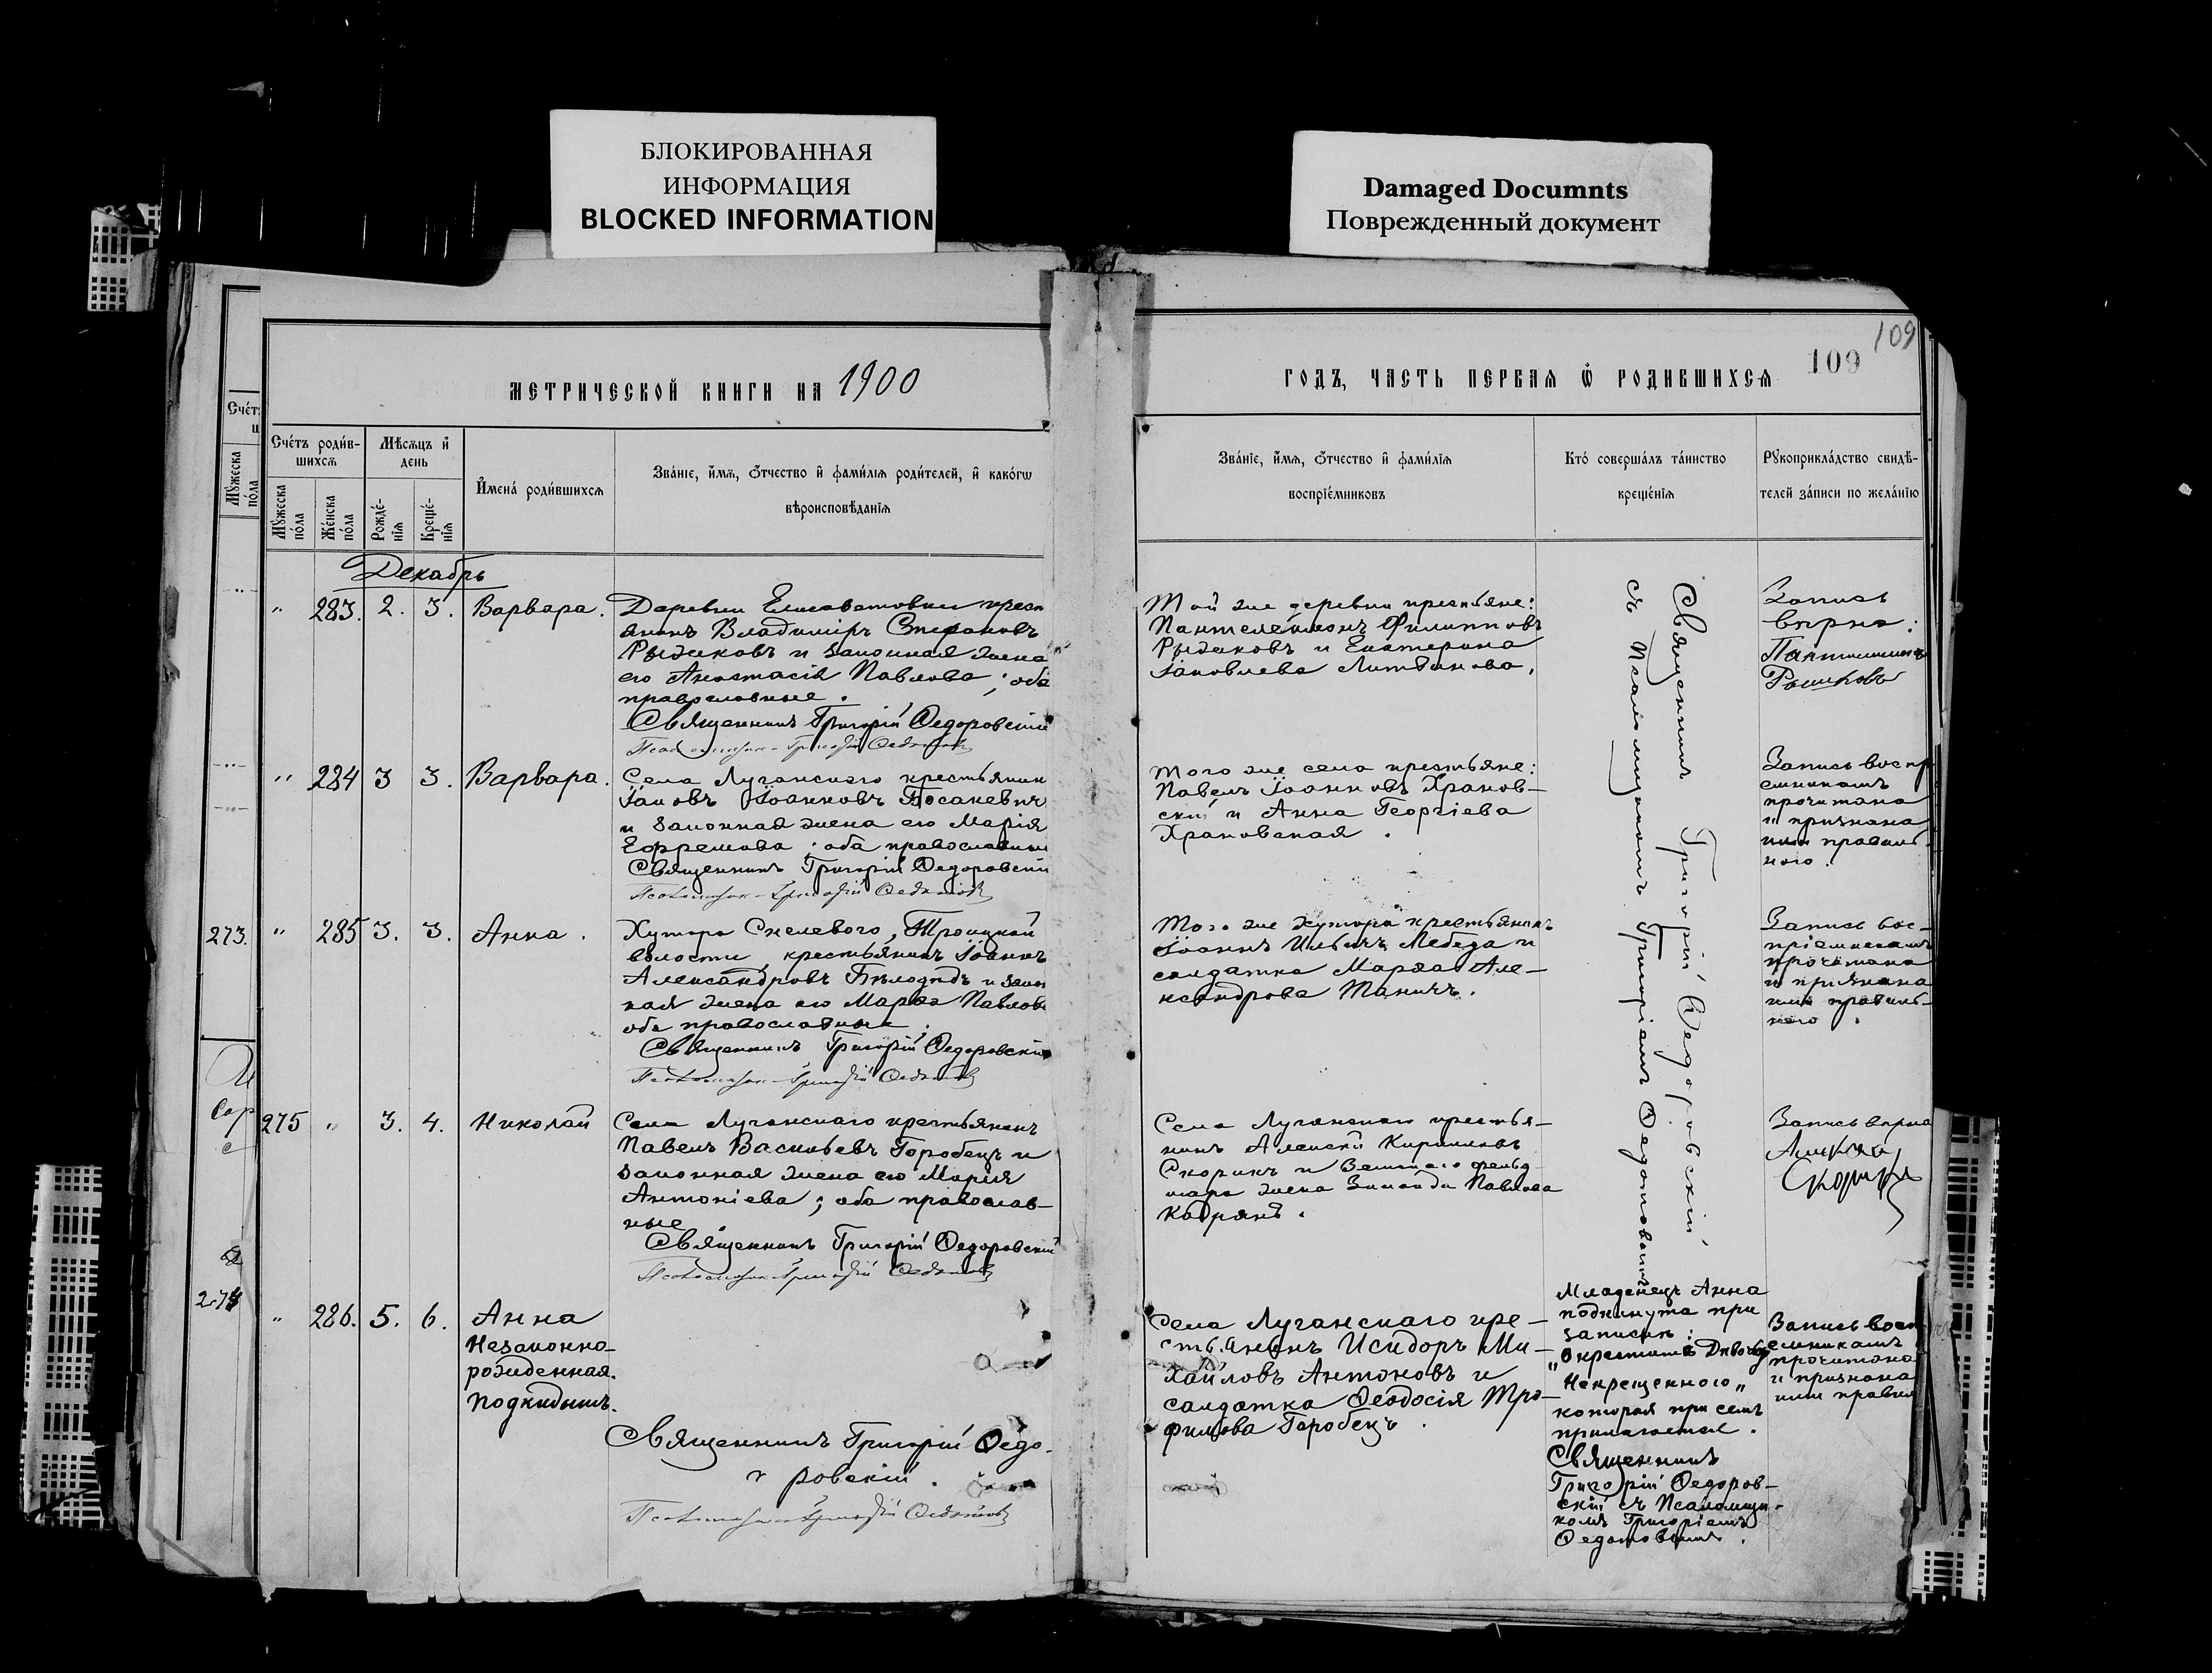 БЛОКИРОВАННАЯ
ИНФОРМАЦИЯ
BLOCKED INFORMATION
Damaged Documnts
Поврежденный документ
109
109
МЕТРИЧЕСКОЙ КНИГИ НА 1900
ГОДЪ, ЧАСТЬ ПЕРВАЯ Ѿ РОДИВШИХСЯ
Счетъ родив-
шихся
Мѣсяцъ и
день
Мужеска
пола
Женска
пола
Рожде-
нія
Креще-
нія
Имена родившихся
Званіе, имя, отчество и фамилія родителей, и какогѡ
вѣроисповѣданія
Званіе, имя, отчество и фамилія
воспріемниковъ
Кто совершалъ таинство
крещенія
Рукоприкладство свидѣ-
телей записи по желанію
Декабрь
" 283. 2. 3. Варвара.
Деревни Елисаветовки крест
янинъ Владиміръ Стефановъ
Рыжковъ и законная жена
его Анастасія Павлова; оба
православные.
Священникъ Григорій Федоровскій
Той же деревни крестьяне:
Пантелеймонъ Филипповъ
Рыжковъ и Екатерина
Іаковлева Литвинова.
Запись
вѣрна:
" 284 3 3. Варвара.
Села Луганскаго крестьянин
Іаковъ Іоанновъ
и законная жена его Марія
Ефремова; оба православные
Священникъ Григорій Федоровскій
Того же села крестьяне:
Павелъ Іоанновъ Хранов-
скій и Анна Георгіева
Храновская.
Запись воспр
емникамъ
прочитана
и признана
ими правиль-
ною.
273.
" 285 3. 3. Анна.
Хутора Скелевого, Троицкой
волости, крестьянинъ Іоаннъ
Александровъ Бѣлодѣдъ и закон
ная жена его Марѳа Павлова
оба православные.
Священникъ Григорій Федоровскій
Того же хутора крестьянинъ
Іоаннъ Ильичъ Лебеда и
солдатка Марѳа Але-
ксандрова Таничъ.
Запись вос-
пріемникамъ
прочитана
и признана
ими правиль-
ною.
275 " 3. 4. Николай
Села Луганскаго крестьянинъ
Павелъ Васильевъ Горобецъ и
законная жена его Марія
Антоніева; оба православ-
ные.
Священникъ Григорій Федоровскій
Села Луганскаго крестья-
нинъ Алексій Кирилловъ
Скоринъ и Земскаго фельд-
шера жена Зинаида Павлова
Запись вѣрна
Священникъ Григорій Федоровскій
съ Псаломщикомъ Григоріемъ Федотовымъ
274
" 286. 5. 6. Анна
Незаконно-
рожденная.
Подкидышъ.
Священникъ Григорій Федо-
ровскій.
Села Луганскаго кре-
стьянинъ Исидоръ Ми-
хайловъ Антоновъ и
солдатка Феодосія Тро-
фимова Горобецъ.
Младенецъ Анна
подкинута при
запискѣ:
Некрещенного"
которая при семъ
прилагается.
Священникъ
Григорій Федоров-
скій съ Псаломщи-
комъ Григоріемъ
Федотовымъ.
Запись восп
емникамъ
прочитана
и признана
ими правил